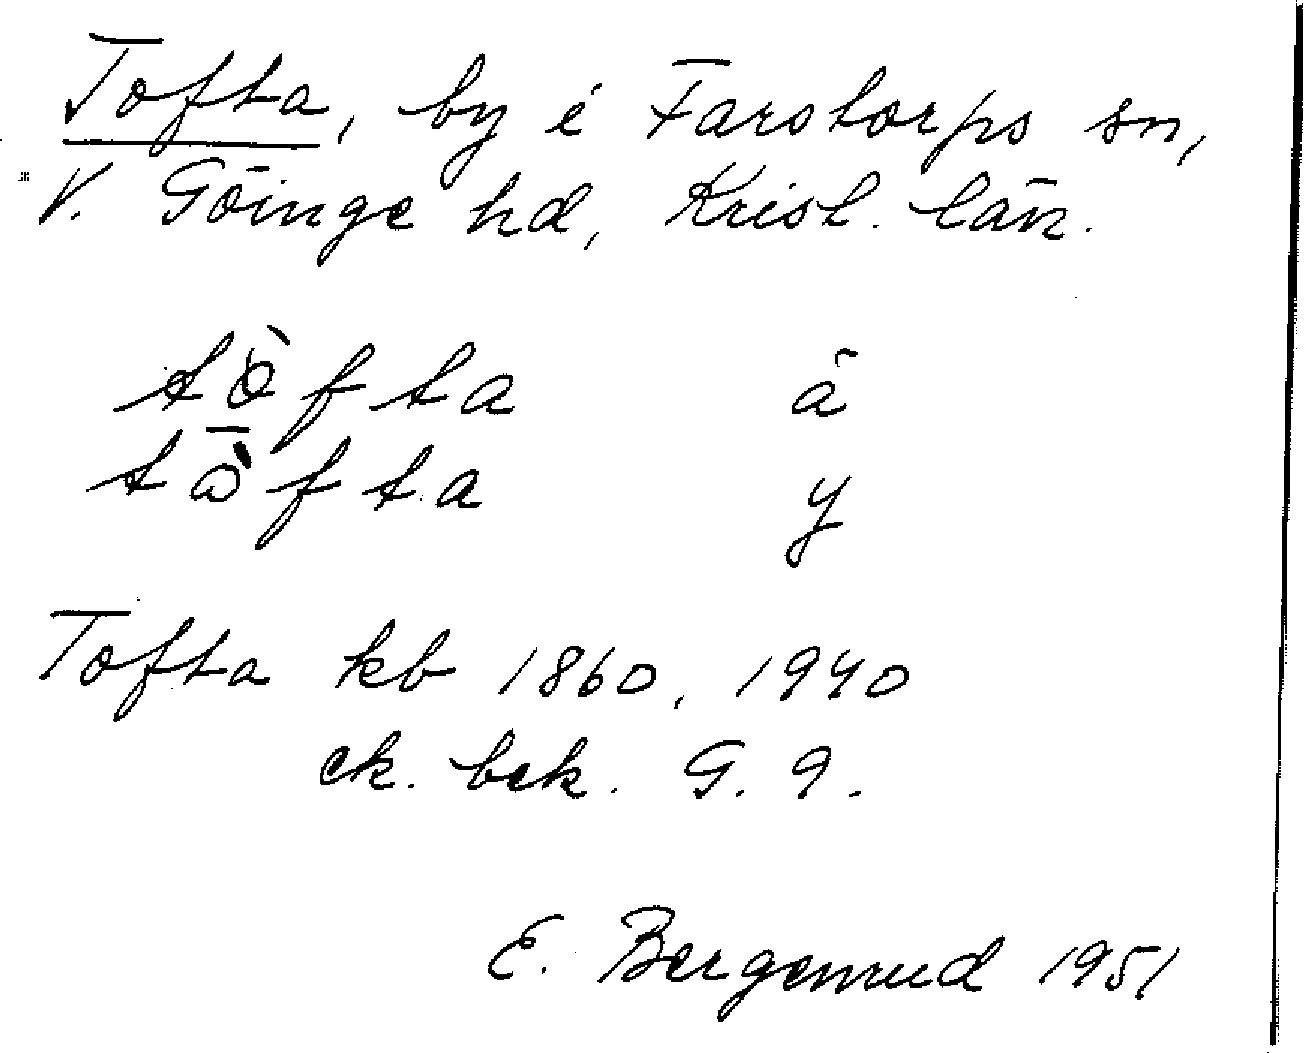 Tofta, by i Farstorps sn,
V. Göinge hd, Krist. län.
tòfta ä
tàfta y
Tofta kb 1860, 1940
ek. bek. G. 9.
E. Bergenrud 1951